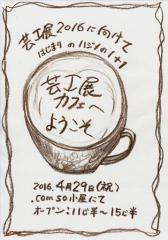 芸工展2016に向けて
はじまりの1じ1の1+1
芸工展
カフェへ
ようこそ
2016.4月29日(祝)
.com so小屋にて
オープン:11じ半〜15じ半